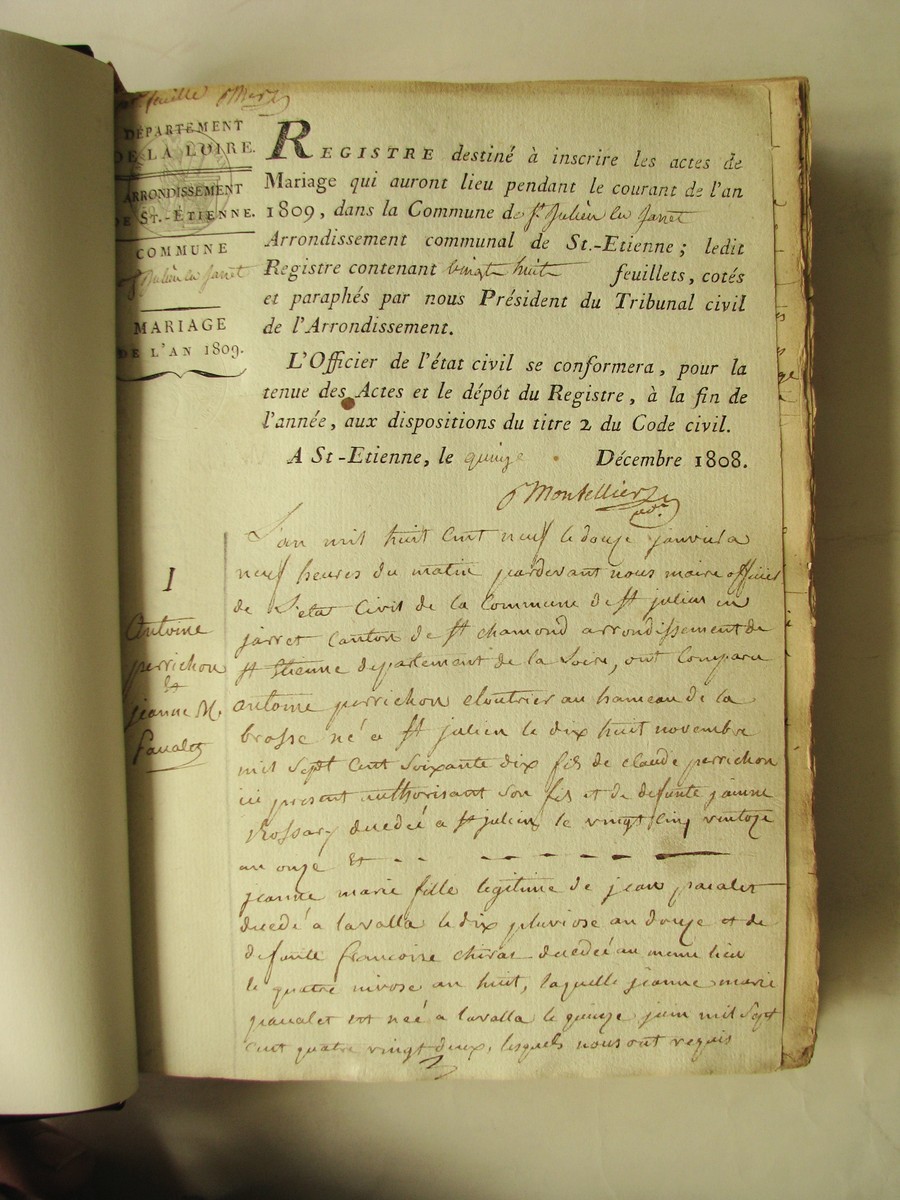 feuille
DÉPARTEMENT
DE LA LOIRE.
ARRONDISSEMENT
DE ST.-ÉTIENNE.
COMMUNE
St Julien en Jarret
MARIAGE
DE L'AN 1809.
REGISTRE destiné à inscrire les actes de
Mariage qui auront lieu pendant le courant de l'an
1809, dans la Commune de St Julien en Jarret
Arrondissement communal de St.-Etienne; ledit
Registre contenant vingt huit feuillets, cotés
et paraphés par nous Président du Tribunal civil
de l'Arrondissement.
L'Officier de l'état civil se conformera, pour la
tenue des Actes et le dépôt du Registre, à la fin de
l'année, aux dispositions du titre 2 du Code civil.
A St-Etienne, le quinze Décembre 1808.
Montellier
1
Antoine
perrichon
et
jeanne M.
pavalet
L'an mil huit cent neuf le douze janvier a
neuf heures du matin pardevant nous maire officier
de L'etat Civil de la Commune de St julien en
jarret canton de St chamond arrondissement de
St Etienne departement de la Loire, ont Comparu
antoine perrichon cloutrier au hameau de la
brosse né a St julien le dix huit novembre
mil sept cent soixante dix fils de claude perrichon
ici present authorisant son fils et de defunte jeanne
Rossary decedeé a St julien le vingt cinq ventoze
an onze et
jeanne marie fille legitime de jean pavalet
decedé a lavalla le dix pluviose an douze et de
defunte francoise chirat decedeé au meme lieu
le quatre nivose an huit, laquelle jeanne marie
pavalet est neé a lavalla le quinze juin mil sept
cent quatre vingt deux, lesquels nous ont requis